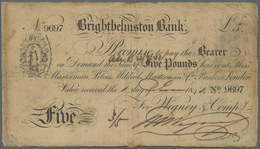 Brighthelmston Bank
No 9697 £5
I Promise to pay the Bearer
on Demand the Sum of Five Pounds here or at Messrs
Masterman, Peters, Mildred, Masterman & Co Bankers London
Value received the day of 18 No 9697
For Wigney & Compy
Five